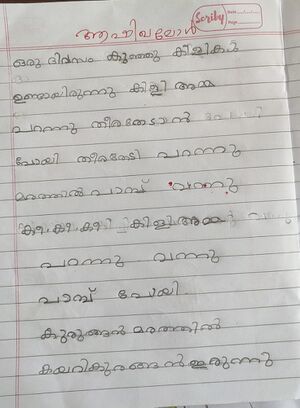 Scriby
Date
Page
ഒരു ദിവസം കുഞ്ഞു കിളികൾ
ഉണ്ടായിരുന്നു കിളി അമ്മ
പറന്നു തീരതേടാൻ
പോയി തീരതേടി പറന്നു
മരത്തിൽ പാമ്പ് വന്നു
കീ കീ കീ കിളി അമ്മ
പറന്നു വന്നു
പാമ്പ് പോയി
കുരുങ്ങൻ മരത്തിൽ
കയറി കുരങ്ങൻ ഇരുന്നു